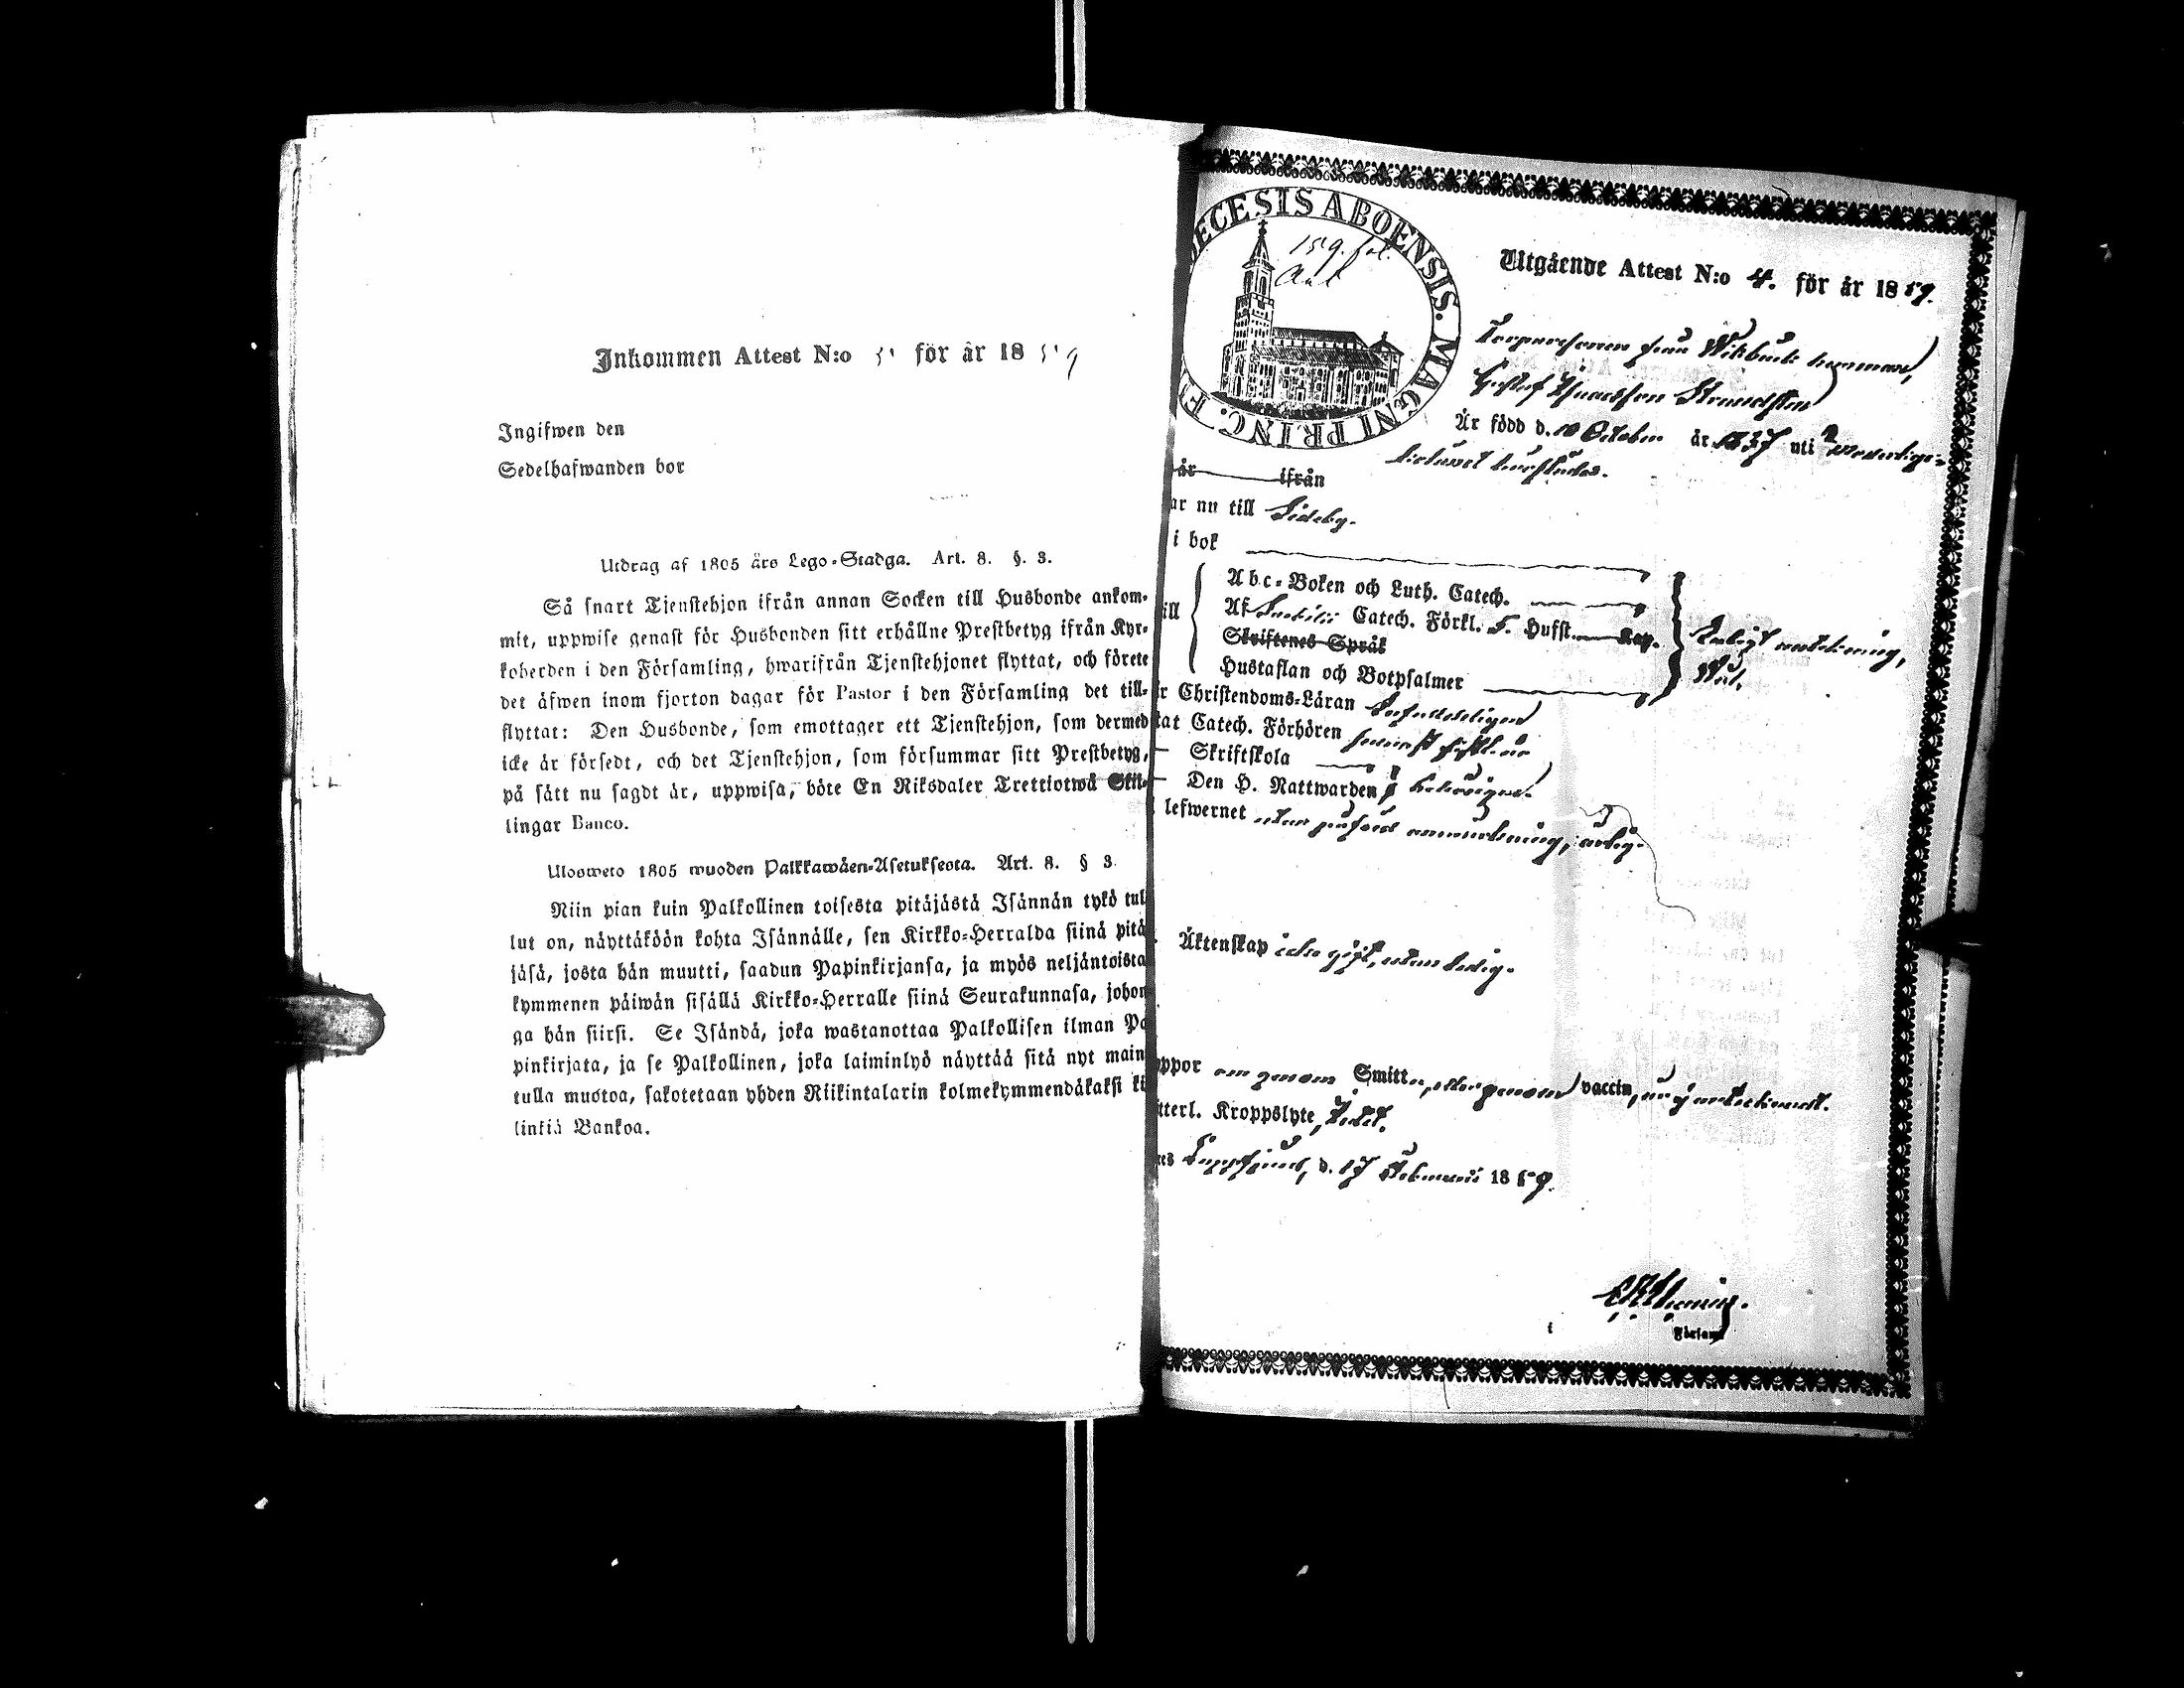 Inkommen Attest N:o 5 för år 1859
Ingifwen den
Sedelhafwanden bor
Utdrag af 1805 års Lego-Stadga. Art. 8. §. 3.
Så snart Tjenstehjon ifrån annan Socken till Husbonde ankom-
mit, uppwise genast för Husbonden sitt erhållne Prestbetyg ifrån Kyr-
koherden i den Församling, hwarifrån Tjenstehjonet flyttat, och förete
det äfwen inom fjorton dagar för Pastor i den Församling det till-
flyttat: Den Husbonde, som emottager ett Tjenstehjon, som dermed
icke är försedt, och det Tjenstehjon, som försummar sitt Prestbetyg,
på sätt nu sagdt är, uppwisa, böte En Riksdaler Trettiotwå Skil-
lingar Banco.
Ulosweto 1805 wuoden Palkkawäen-Asetuksesta. Art. 8. § 3.
Niin pian kuin Palkollinen toisesta pitäjästä Isännän tykö tul
lut on, näyttäköön kohta Isännälle, sen Kirkko-Herralda siinä pitä
jäsä, josta hän muutti, saadun Papinkirjansa, ja myös neljäntoista
kymmenen päiwän sisällä Kirkko-Herralle siinä Seurakunnasa, johon
ga hän siirsi. Se Isändä, joka wastanottaa Palkollisen ilman Pa
pinkirjata, ja se Palkollinen, joka laiminlyö näyttää sitä nyt main
tulla muotoa, sakotetaan yhden Riikintalarin kolmekymmendäkaksi ki
linkiä Bankoa.
ECESIS ABOENSIS. MAGNI PRINC. F
159. fol.
Utgående Attest N:o 4. för år 1859.
Torparesonen från Wikbäck hemman,
Gustaf Strandsten
Är född d. 10 October år 1837 uti
är ifrån
ar nu till Sideby.
i bok
Abc-Boken och Luth. Catech.
ill Af Swebilii Catech. Förkl. Husf. Kap.
Skriftenes Språk
Hustaflan och Botpsalmer
r Christendoms-Läran
tat Catech. Förhören
Skriftskola
Den H. Nattwarden
lefwernet utan anmärkning, ärlig.
Äktenskap icke gift, utan ledig.
ppor om genom Smitta, eller genom vaccin, är ej antecknadt.
tterl. Kroppslyte,
es Lappfjerd, d. 17 Februarii 1859.